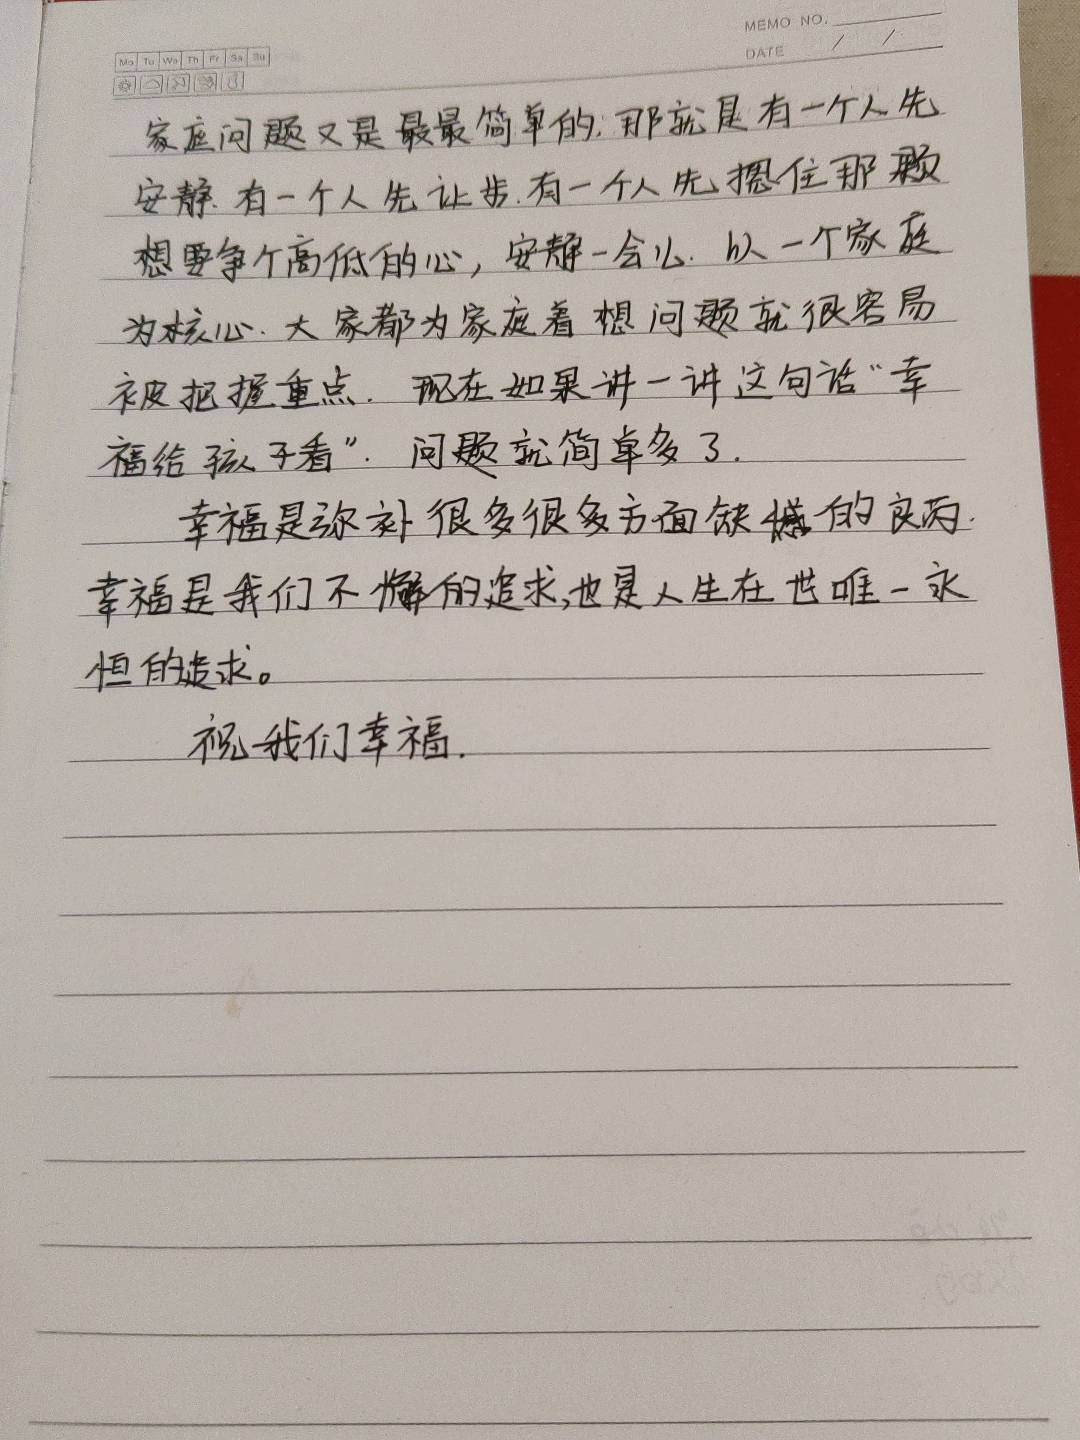 MEMO NO.
Mo Tu We Th Fr Sa Su
DATE / /
家庭问题又是最最简单的.那就是有一个人先
安静.有一个人先让步.有一个人先摁住那颗
想要争个高低的心,安静一会儿.以一个家庭
为核心.大家都为家庭着想问题就很容易
被把握重点.现在如果讲一讲这句话“幸
福给孩子看”.问题就简单多了.
幸福是弥补很多很多方面缺憾的良药.
幸福是我们不懈的追求,也是人生在世唯一永
恒的追求。
祝我们幸福.